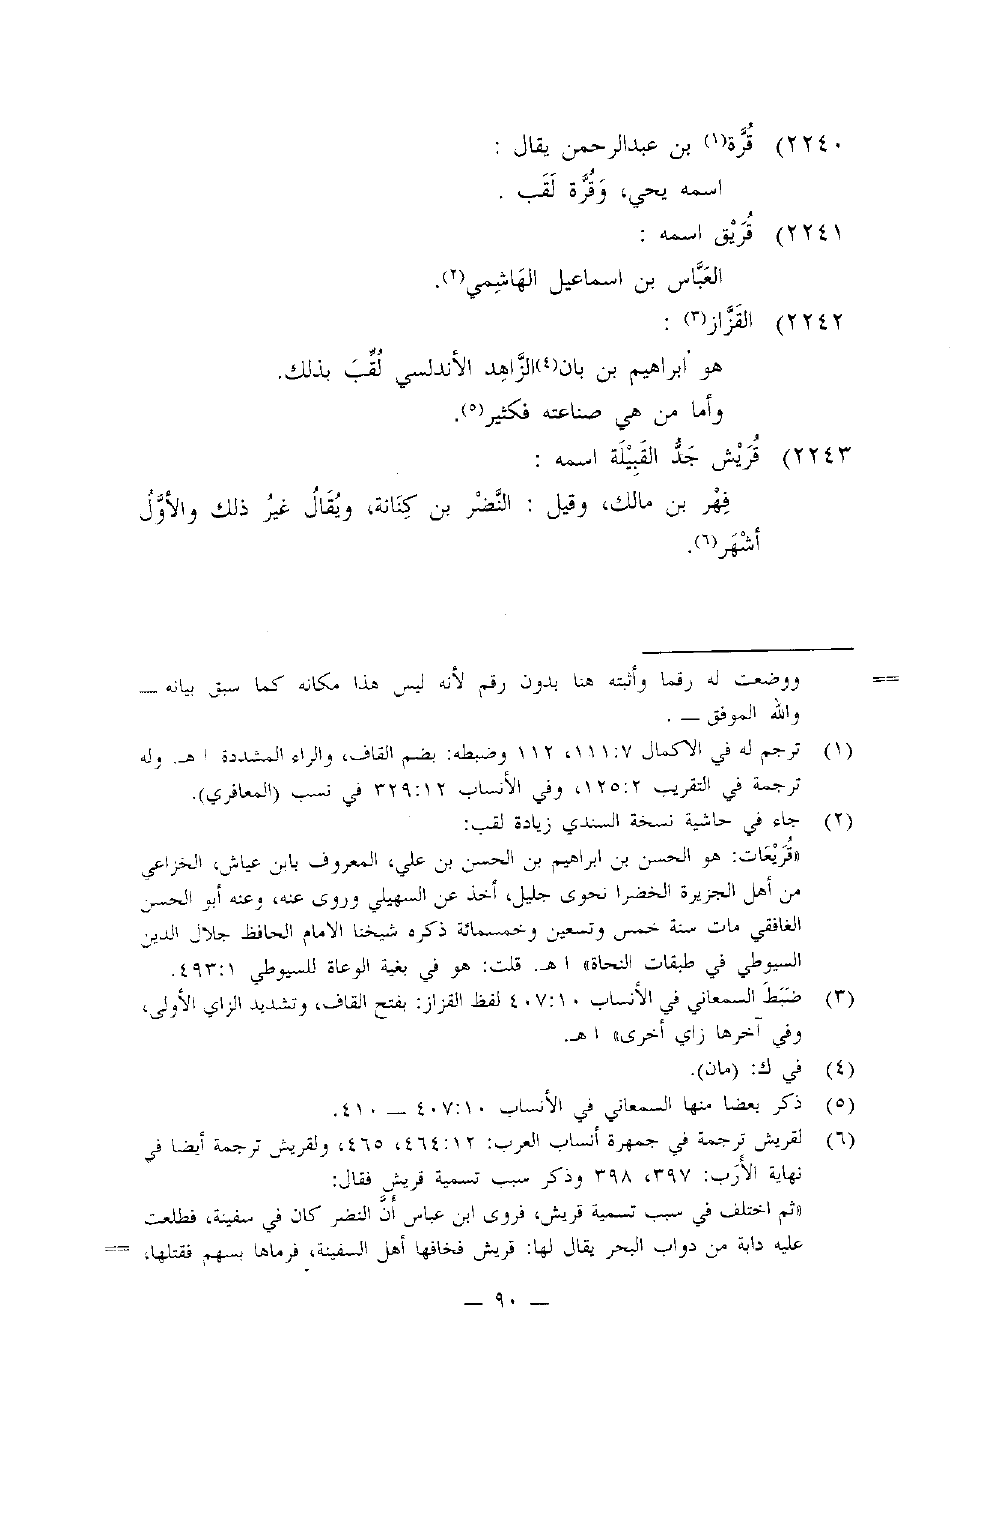 ٢٢٤٠) قُرَّة(١) بن عبدالرحمن يقال :
اسمه يحي، وَقُرَّة لَقَب .
٢٢٤١) قُرَيْق اسمه :
العَبَّاس بن اسماعيل الهَاشِمي(٢).
٢٢٤٢) القَزَّاز(٣) :
هو ابراهيم بن بان(٤)الزَّاهِد الأندلسي لُقِّبَ بذلك.
وأما من هي صناعته فكثير(٥).
٢٢٤٣) قُرَيْش جَدُّ القَبِيْلَة اسمه :
فِهْر بن مالك، وقيل : النَّضْر بن كِنَانة، ويُقَالُ غيرُ ذلك والأوَّلُ
أشْهَر(٦).
== ووضعت له رقما وأثبته هنا بدون رقم لأنه ليس هذا مكانه كما سبق بيانه —
والله الموفق — .
(١) ترجم له في الاكمال ١١١:٧، ١١٢ وضبطه: بضم القاف، والراء المشددة ا هـ. وله
ترجمة في التقريب ١٢٥:٢، وفي الأنساب ٣٢٩:١٢ في نسب (المعافري).
(٢) جاء في حاشية نسخة السندي زيادة لقب:
«قُرَيْعَات: هو الحسن بن ابراهيم بن الحسن بن علي، المعروف بابن عياش، الخزاعي
من أهل الجزيرة الخضرا نحوى جليل، أخذ عن السهيلي وروى عنه، وعنه أبو الحسن
الغافقي مات سنة خمس وتسعين وخمسمائة ذكره شيخنا الامام الحافظ جلال الدين
السيوطي في طبقات النحاة» ا هـ. قلت: هو في بغية الوعاة للسيوطي ٤٩٣:١.
(٣) ضَبَطَ السمعاني في الأنساب ٤٠٧:١٠ لفظ القزاز: بفتح القاف، وتشديد الزاي الأولى،
وفي آخرها زاي أخرى» ا هـ.
(٤) في ك: (مان).
(٥) ذكر بعضا منها السمعاني في الأنساب ٤٠٧:١٠ — ٤١٠.
(٦) لقريش ترجمة في جمهرة أنساب العرب: ٤٦٤:١٢، ٤٦٥، ولقريش ترجمة أيضا في
نهاية الأَرَب: ٣٩٧، ٣٩٨ وذكر سبب تسمية قريش فقال:
«ثم اختلف في سبب تسمية قريش، فروى ابن عباس أنَّ النضر كان في سفينة، فطلعت
عليه دابة من دواب البحر يقال لها: قريش فخافها أهل السفينة، فرماها بسهم فقتلها، ==
— ٩٠ —